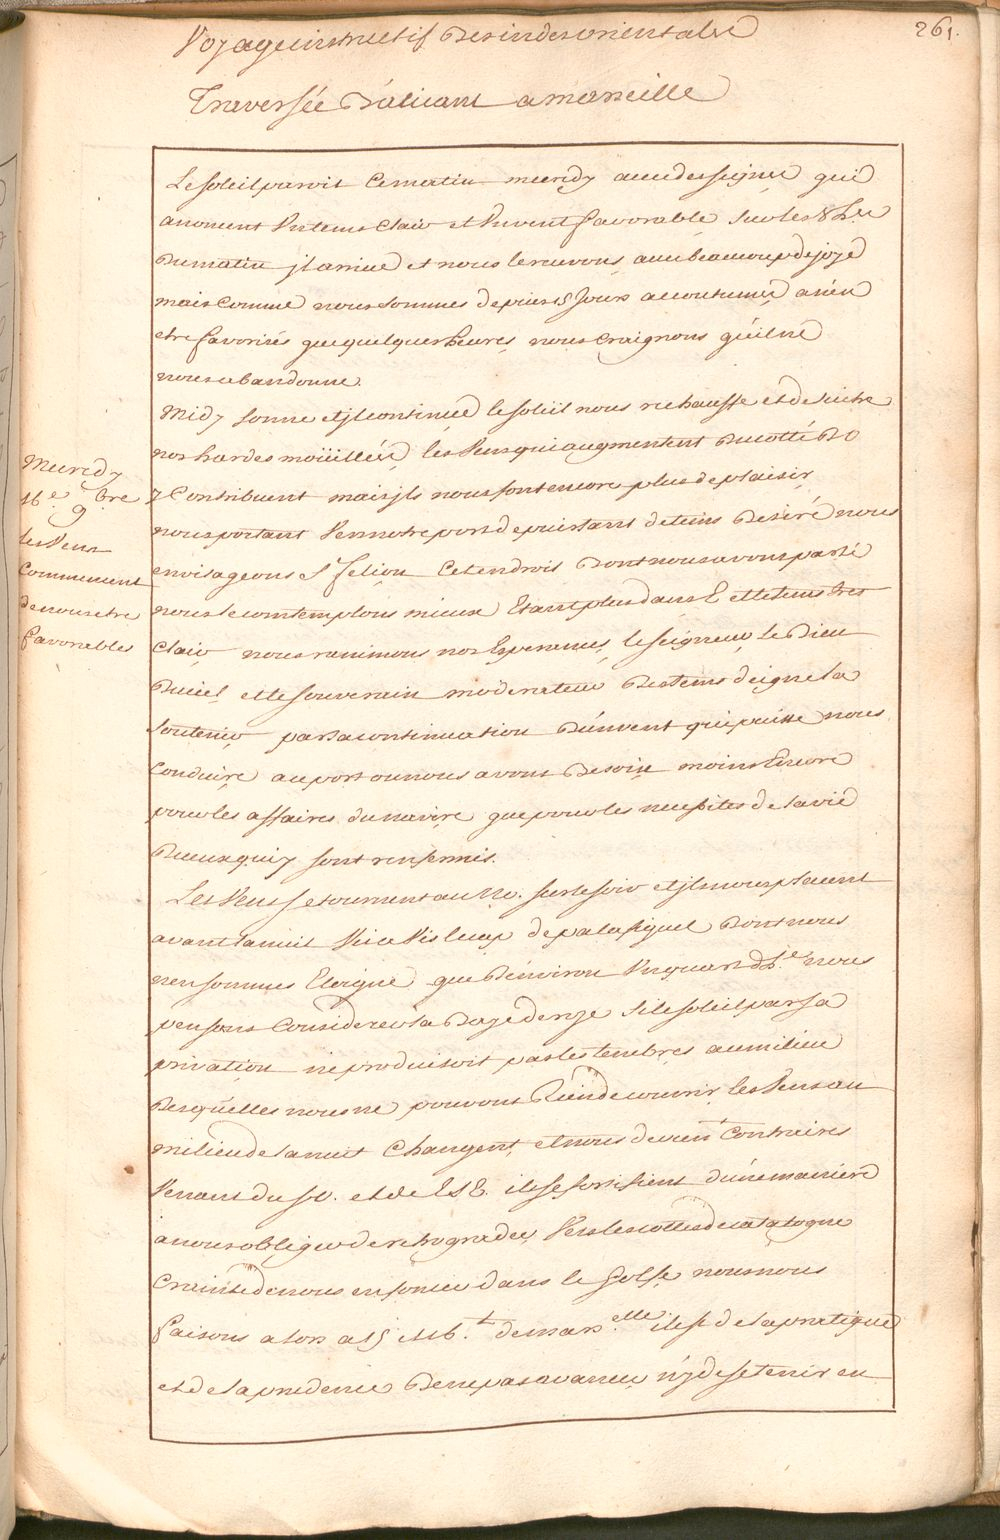 Voyage instructif Des indes orientales
261.
Traversée D'alicant a marseille
Le soleil paroit ce matin mecridy avec des signes qui
anoncent Un tems clair et Un vent favorable, sur les 8 h.es
Du matin jl arrive et nous le recevons avec beaucoup de joye
mais comme nous sommes depuis 15 Jours accoutumés a n'en
etre favorisés que quelques heures, nous craignons qu'il ne
nous abandonne.
Midy sonne et jl continue le soleil nous rechauffe et de suite
nos hardes moüillées, les Vens qui augmentent Du cotté De
y Contribuent mais jls nous font encore plus de plaisir
nous portant Vers notre port depuis tant de tems Desiré nous
envisageons St feliou Cet endroit Dont nous avons parlé
nous le comtemplons mieux Etant plus dans E et le tems tres
clair nous ranimons nos Esperances, le seigneur Le Dieu
Du ciel et le souverain moderateur Des tems deigne la
soutenir par sa continuation D'un vent qui puisse nous
conduire au port ou nous avons Besoin moins Encore
pour les affaires du navire que pour les necessites de la vie
De ceux qui y sont renfermés.
Les Vens se tournent au No. sur le soir et jls nous placent
avant la nuit Vis a Vis le cap de palafiguel Dont nous
nen sommes Eloigné que D'environ Un quart de L.e nous
pensons Considerer la Baye de roze si le soleil par sa
privation ne produisoit pas les tenebres au milieu
Desquelles nous ne pouvons Rien decouvrir, les Vens au
milieu de la nuit Changent, et nous devien.t contraires
Venant du So. et de l'SE. ils se fortifient d'une maniere
a nous obliger de retrograder, Vers les cottes de catalogne
Crainte de nous enfoncer dans le Golfe, nous nous
faisons alors a 15 et 16. L. de mars.elle il est de la pratique
et de la prudence De ne pas avancer n'y de se tenir en
Mecridy
16.e 9.bre
les Vens
commencent
de nous etre
favorables